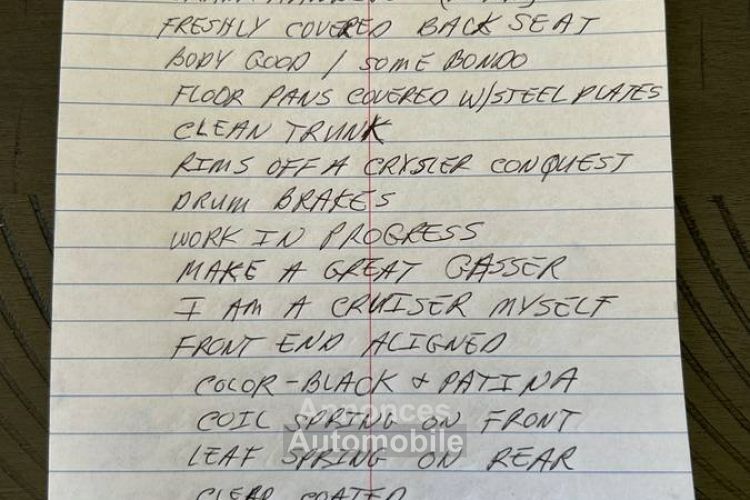 FRESHLY COVERED BACK SEAT
BODY GOOD / SOME BONDO
FLOOR PANS COVERED W/STEEL PLATES
CLEAN TRUNK
RIMS OFF A CRYSLER CONQUEST
DRUM BRAKES
WORK IN PROGRESS
MAKE A GREAT GASSER
I AM A CRUISER MYSELF
FRONT END ALIGNED
COLOR - BLACK & PATINA
COIL SPRING ON FRONT
LEAF SPRING ON REAR
CLEAR COATED
Annonces
Automobile